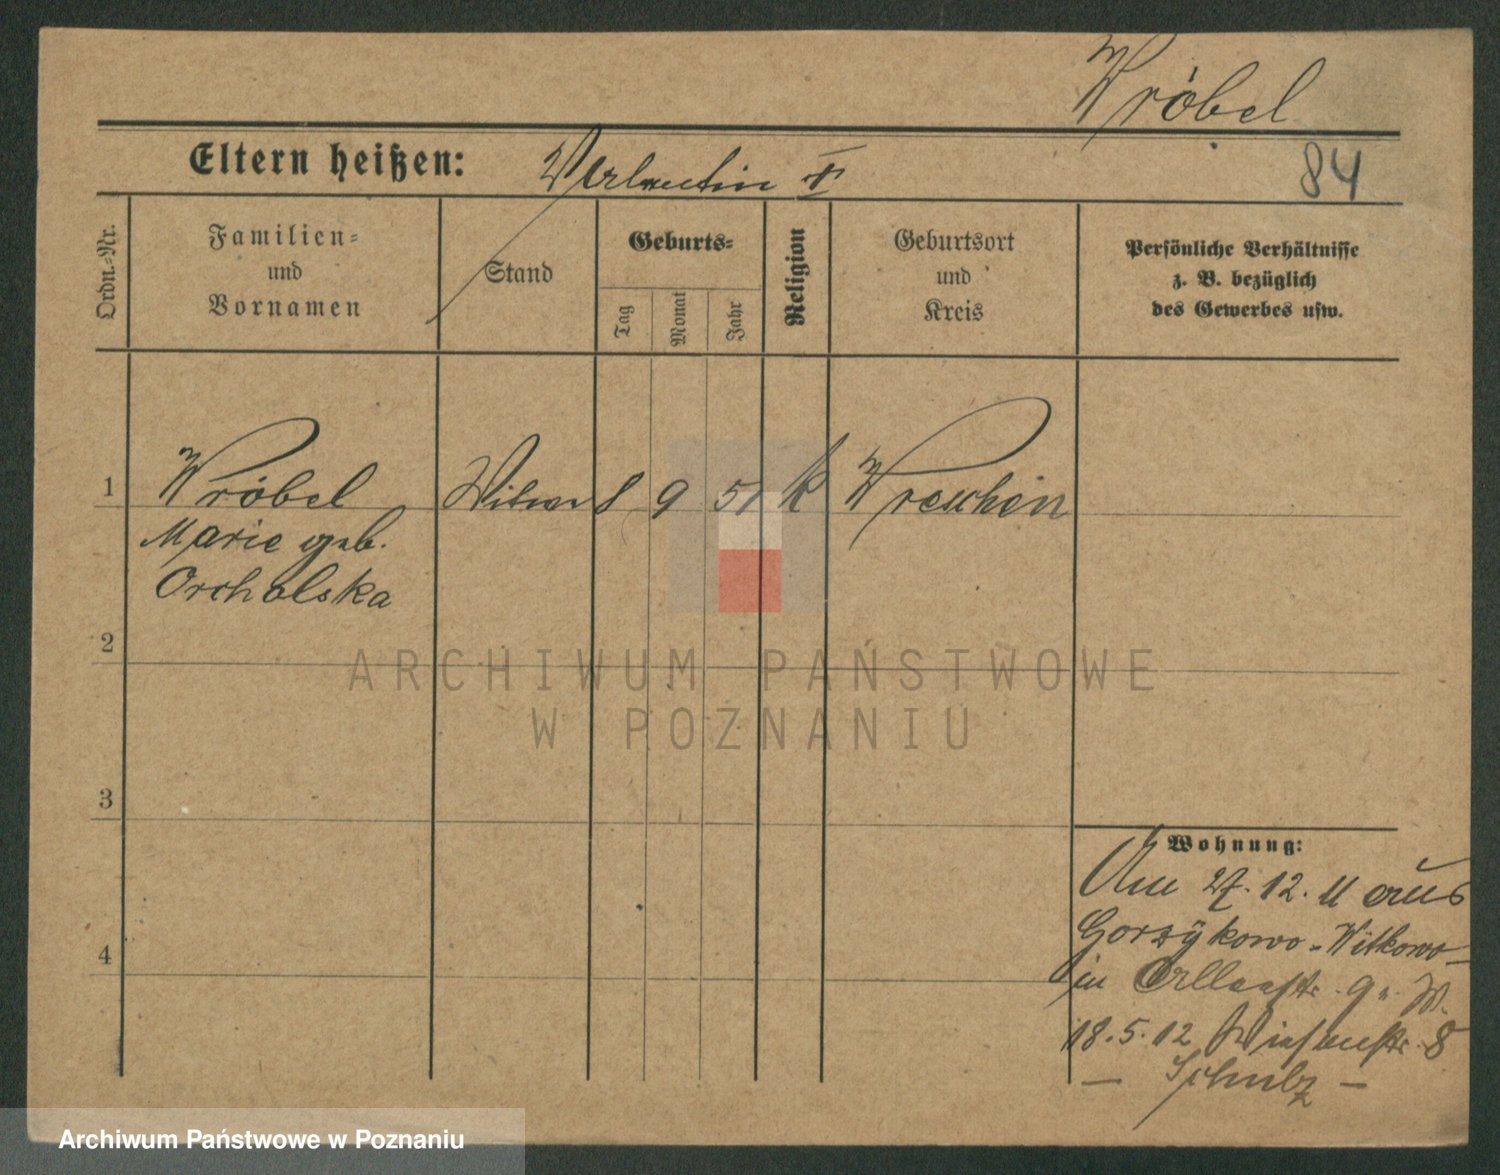 Wróbel
Eltern heißen: Valentin †
84
Ordn.-Nr.
Familien-
und
Vornamen
Stand
Geburts-
Tag
Monat
Jahr
Religion
Geburtsort
und
Kreis
Persönliche Verhältnisse
z. B. bezüglich
des Gewerbes usw.
1 Wróbel Witwe 8 9 51 k Wreschen
Marie geb.
Orcholska
2
ARCHIWUM PAŃSTWOWE
W POZNANIU
3
Wohnung:
Am 27. 12. 11 aus
Gorzykowo - Witkowo
4
in 9
18. 5. 12 Wiesenstr. 8
— Schulz —
Archiwum Państwowe w Poznaniu